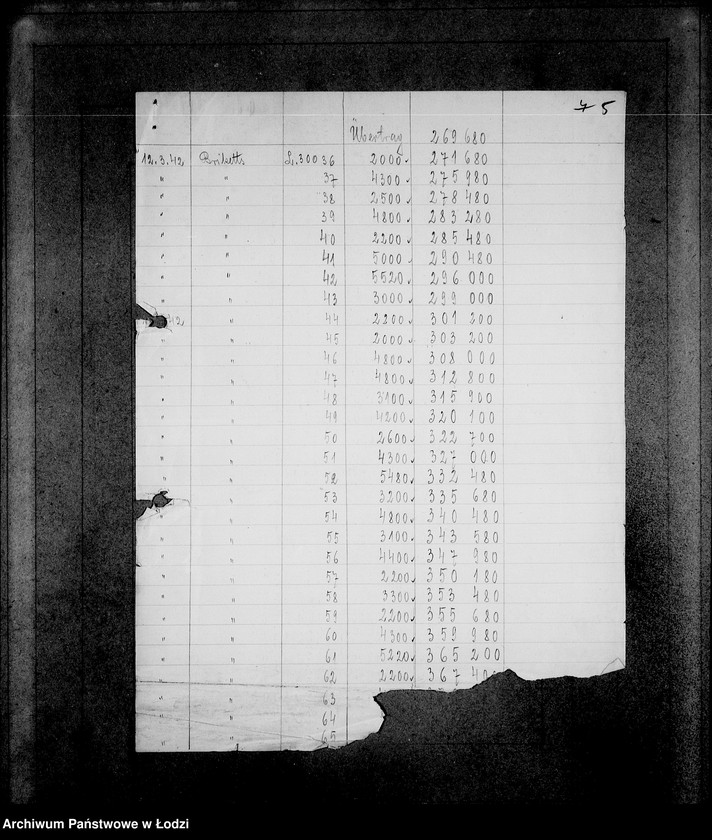 75
Übertrag 269 680
12.3.42 Briketts L. 30036 2000 271 680
" " 37 4300 275 980
" " 38 2500 278 480
" " 39 4800 283 280
" " 40 2200 285 480
" " 41 5000 290 480
" " 42 5520 296 000
" " 43 3000 299 000
42 " 44 2200 301 200
" " 45 2000 303 200
" " 46 4800 308 000
" " 47 4800 312 800
" " 48 3100 315 900
" " 49 4200 320 100
" " 50 2600 322 700
" " 51 4300 327 000
" " 52 5480 332 480
" 53 3200 335 680
" " 54 4800 340 480
" " 55 3100 343 580
" " 56 4400 347 980
" " 57 2200 350 180
" " 58 3300 353 480
" " 59 2200 355 680
" " 60 4300 359 980
" " 61 5220 365 200
" " 62 2200 367 40
" " 63
" " 64
" " 65
Archiwum Państwowe w Łodzi